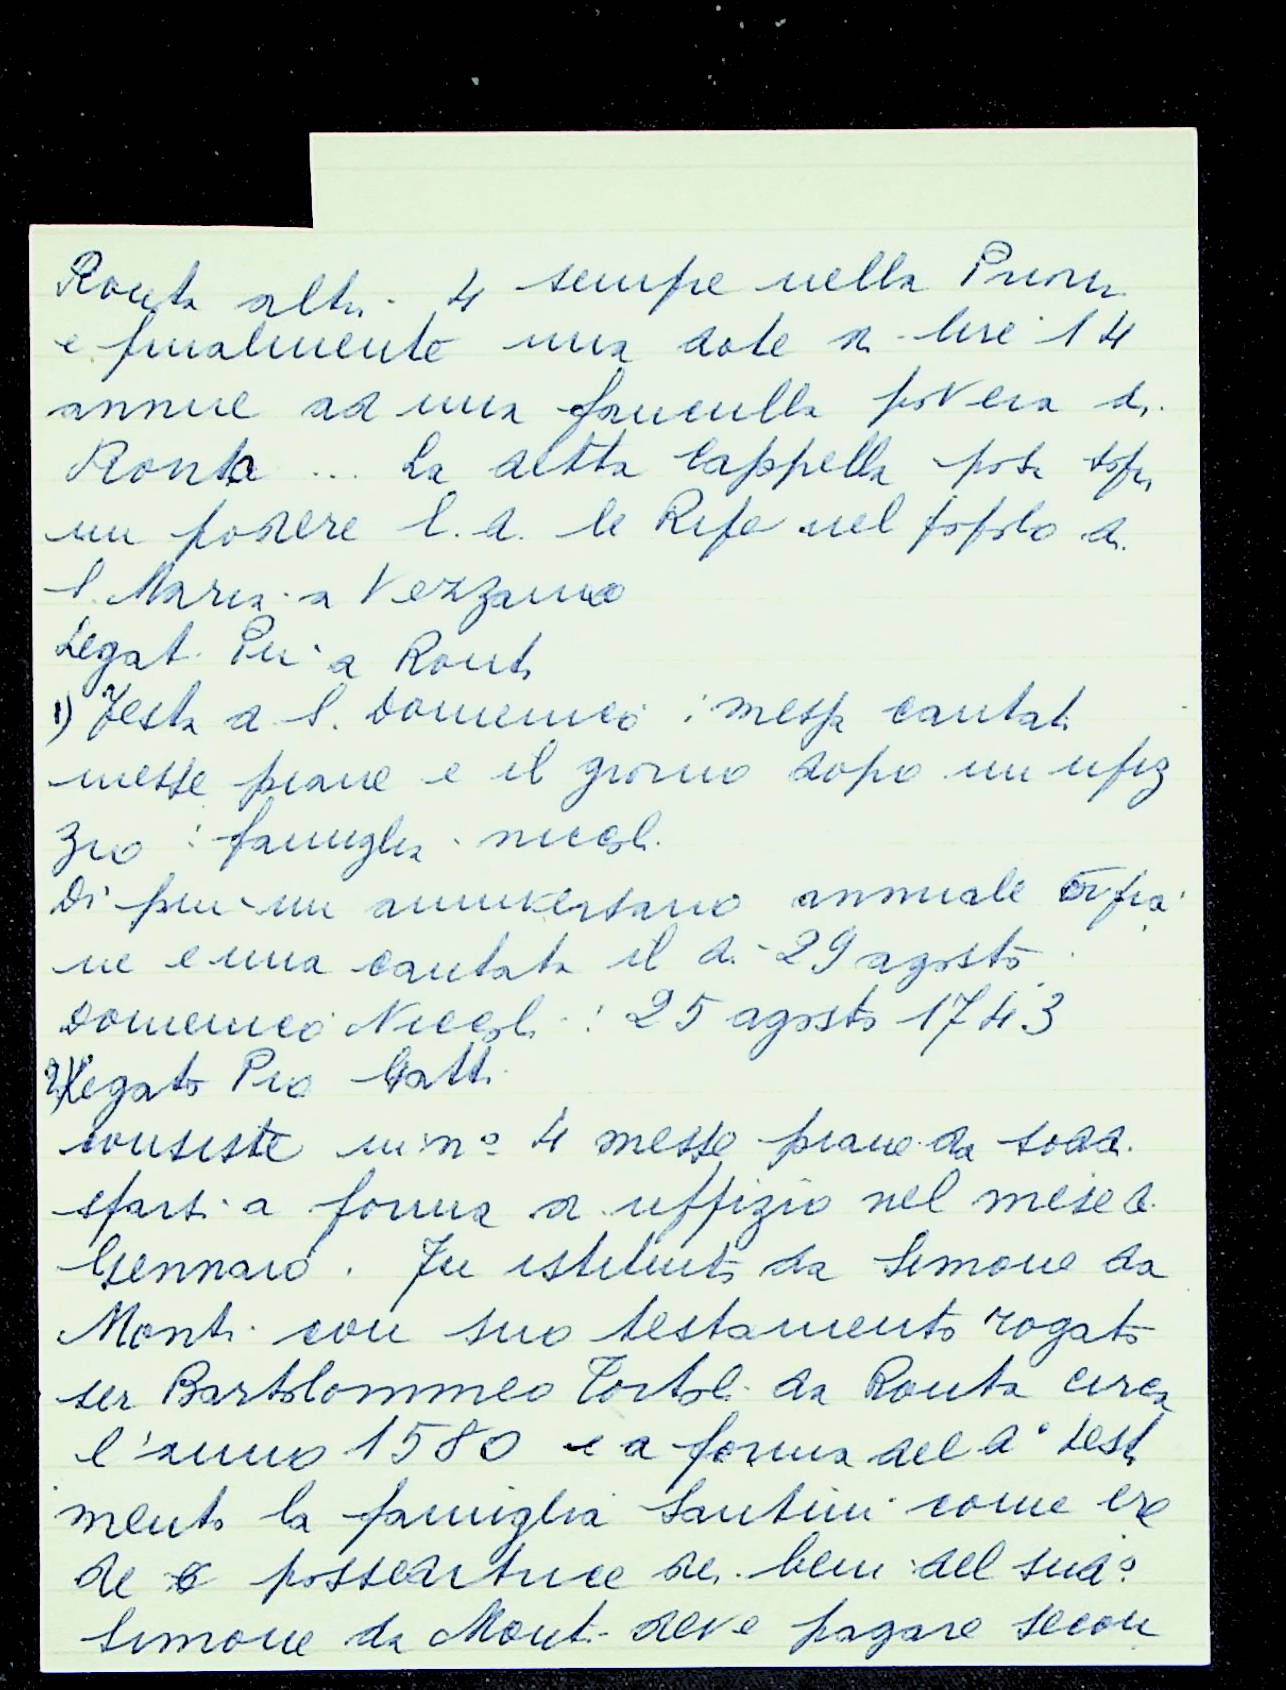 Ronta altri 4 sempre nella Prioria
e finalmente una dote di lire 14
annue ad una fanciulla povera di
Ronta ... La detta Cappella posa sopra
un podere l. d. le Ripe nel popolo di
S. Maria a Vezzano
Legati Pii a Ronta
1) Festa di S. Domenico : messa cantata
messe piane e il giorno dopo un ufiz
zio : famiglia Niccoli
Di piu un anniversario annuale di pia
ne e una cantata il di 29 agosto
Domenico Niccoli : 25 agosto 1743
2) Legato Pio Gatti
consiste in nº 4 messe piane da sodd.
sfarsi a forma di uffizio nel mese di
Gennaio. Fu istituito da Simone da
Monti con suo testamento rogato
ser Bartolommeo Tortoli da Ronta circa
l'anno 1580 e a forma del dº testa
mento la famiglia Santini come ere
de e posseditrice dei beni del sudº
Simone da Monti deve pagare secon